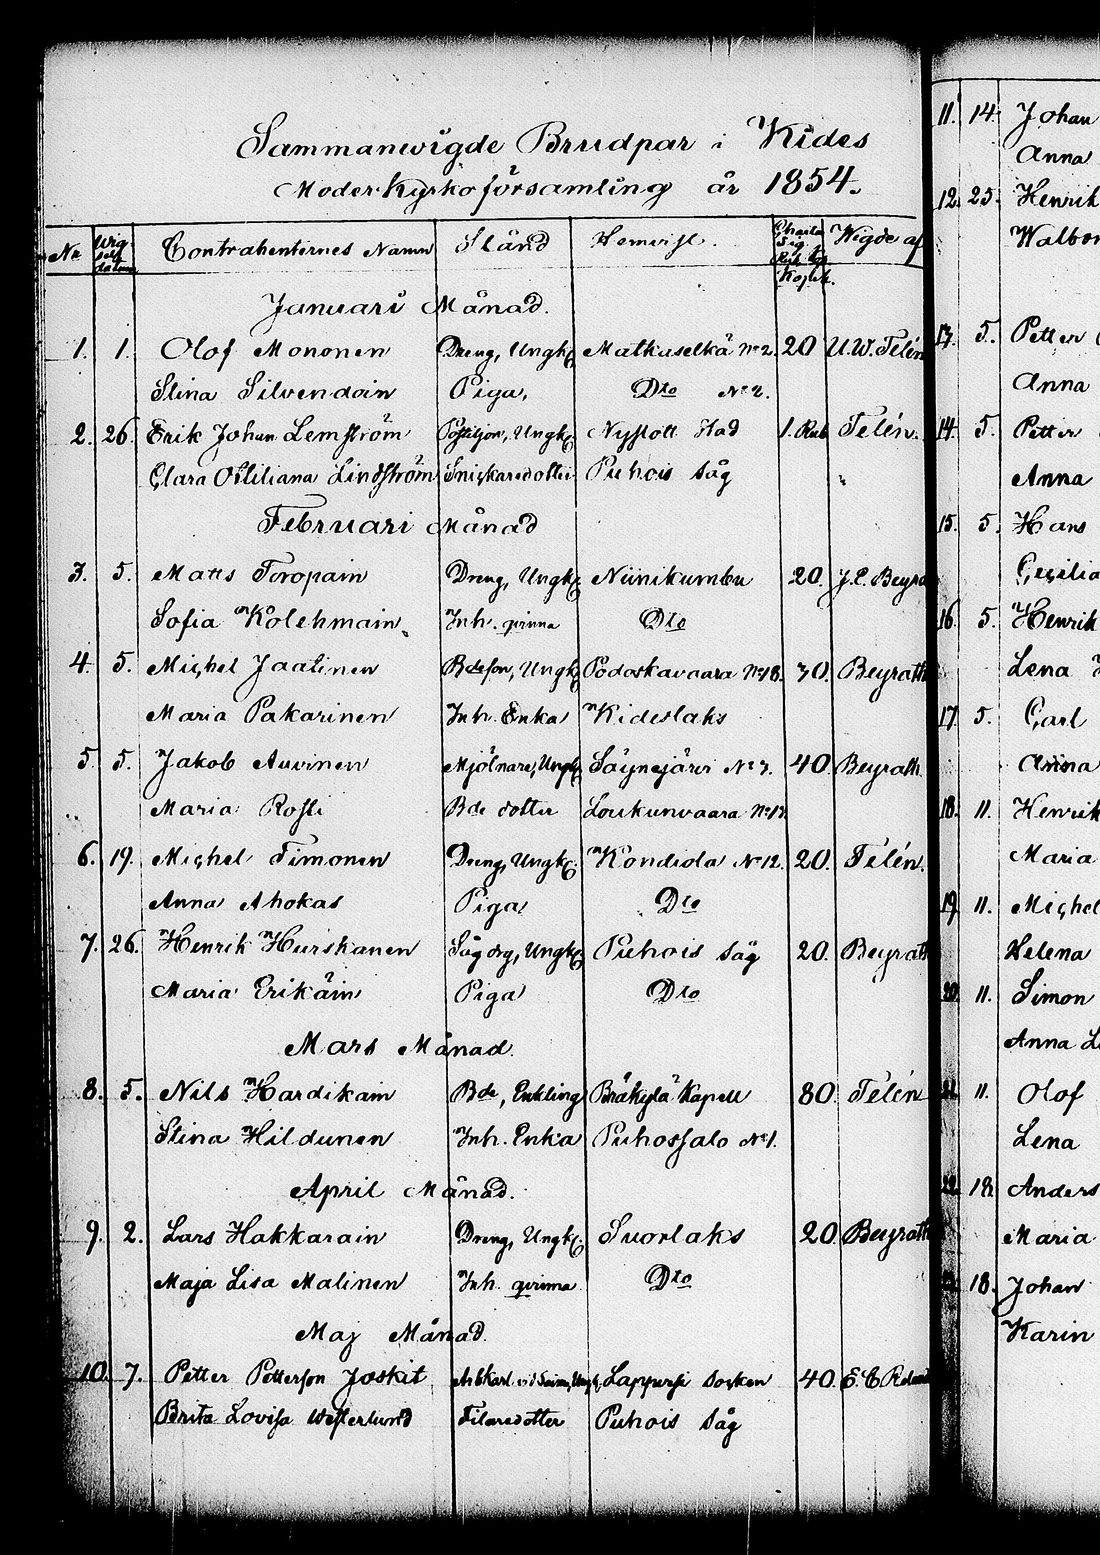 Sammanwigde Brudpar i Kides
Moderkyrkoförsamling år 1854.
No Wigselsdatum Contrahenternes Namn Stånd Hemvist. Charta Sig. Rub. Kop. Wigde af
Kopek.
Januari Månad.
1. 1. Olof Mononen Dreng, Ungk. Matkaselkä No 2. 20 U.W. Telén
Stina Silvendoin Piga, Dto No 2.
2. 26. Erik Johan Lemström Postiljon, Ungk. Nyslott Stad 1. Rub Telén.
Clara Ottiliana Lindström Snickaredotter Puhois Såg "
Februari Månad
3. 5. Matts Toropain Dreng, Ungk. Niinikumbu 20. J.E. Beyra
Sofia Kolehmain Inh. qvinna Dto
4. 5. Michel Jaatinen Bdeson, Ungk. Podoskavaara No 18. 30. Beyrath
Maria Pakarinen Inh. Enka Kideslaks
5. 5. Jakob Auvinen Mjölnare, Ungk. Säynejärvi No 7. 40. Beyrath
Maria Rossi Bde dotter Loukunvaara No 13.
6. 19. Michel Timonen Dreng, Ungk. Kondiola No 12. 20. Telén.
Anna Ahokas Piga Dto
7. 26. Henrik Hurskanen Sågdrg, Ungk. Puhois Såg 20. Beyrath
Maria Erikäin Piga Dto
Mars Månad.
8. 5. Nils Hardikain Bde, Enkling Bräkylä Kapell 80 Telén
Stina Hildunen Inh. Enka Puhossalo No 1.
April Månad.
9. 2. Lars Hakkarain Dreng, Ungk. Suorlaks 20. Beyrath
Maja Lisa Malinen Inh. qvinna Dto
Maj Månad.
10. 7. Petter Petterson Joskit Arbkarl vid Saima, Ungk. Lappvesi Socken 40. E.E.
Brita Lovisa Westerlund Filaredotter Puhois Såg
11. 14. Johan
Anna
12. 25. Henrik
Walbor
13. 5. Petter
Anna
14. 5. Petter
Anna
15. 5. Hans
Cecilia
16. 5. Henrik
Lena
17. 5. Carl
Anna
18. 11. Henrik
Maria
19. 11. Michel
Helena
20. 11. Simon
Anna L
11. Olof
Lena
18. Anders
Maria
18. Johan
Karin